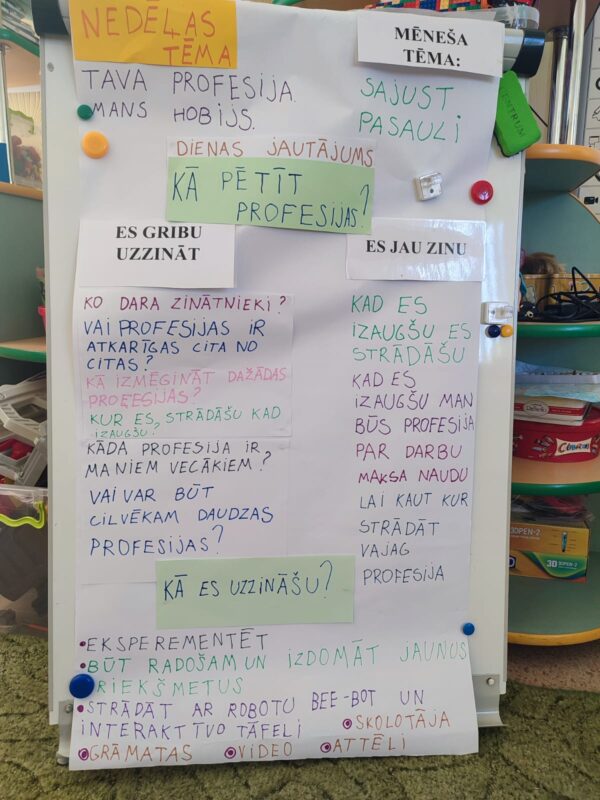 NEDĒĻAS
TĒMA
MĒNEŠA
TĒMA:
TAVA PROFESIJA.
MANS HOBIJS.
SAJUST
PASAULI
CENTRUM
DIENAS JAUTĀJUMS
KĀ PĒTĪT
PROFESIJAS?
ES GRIBU
UZZINĀT
KO DARA ZINĀTNIEKI?
VAI PROFESIJAS IR
ATKARĪGAS CITA NO
CITAS?
KĀ IZMĒGINĀT DAŽĀDAS
PROFESIJAS?
KUR ES STRĀDĀŠU KAD
IZAUGŠU?
KĀDA PROFESIJA IR
MANIEM VECĀKIEM?
VAI VAR BŪT
CILVĒKAM DAUDZAS
PROFESIJAS?
ES JAU ZINU
KAD ES
IZAUGŠU ES
STRĀDĀŠU
KAD ES
IZAUGŠU MAN
BŪS PROFESIJA
PAR DARBU
MAKSA NAUDU
LAI KAUT KUR
STRĀDĀT
VAJAG
PROFESIJA
KĀ ES UZZINĀŠU?
EKSPEREMENTĒT
BŪT RADOŠAM UN IZDOMĀT JAUNUS
PRIEKŠMETUS
STRĀDĀT AR ROBOTU BEE-BOT UN
INTERAKTĪVO TĀFELI
SKOLOTĀJA
GRĀMATAS VIDEO ATTĒLI
3DPEN-2